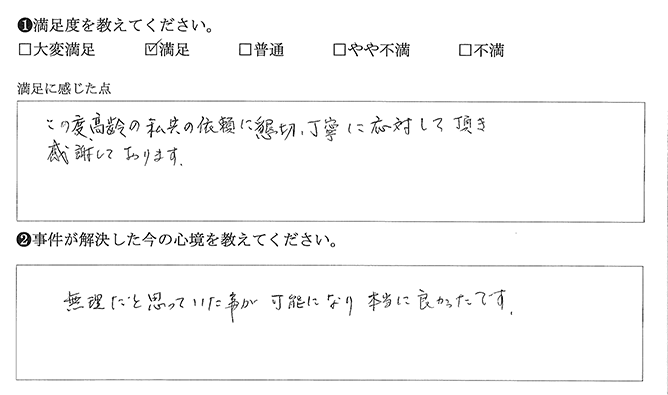 ❶満足度を教えてください。
□大変満足 ☑満足 □普通 □やや不満 □不満
満足に感じた点
この度、高齢の私共の依頼に懇切、丁寧に応対して頂き
感謝しております。
❷事件が解決した今の心境を教えてください。
無理だと思っていた事が可能になり本当に良かったです。